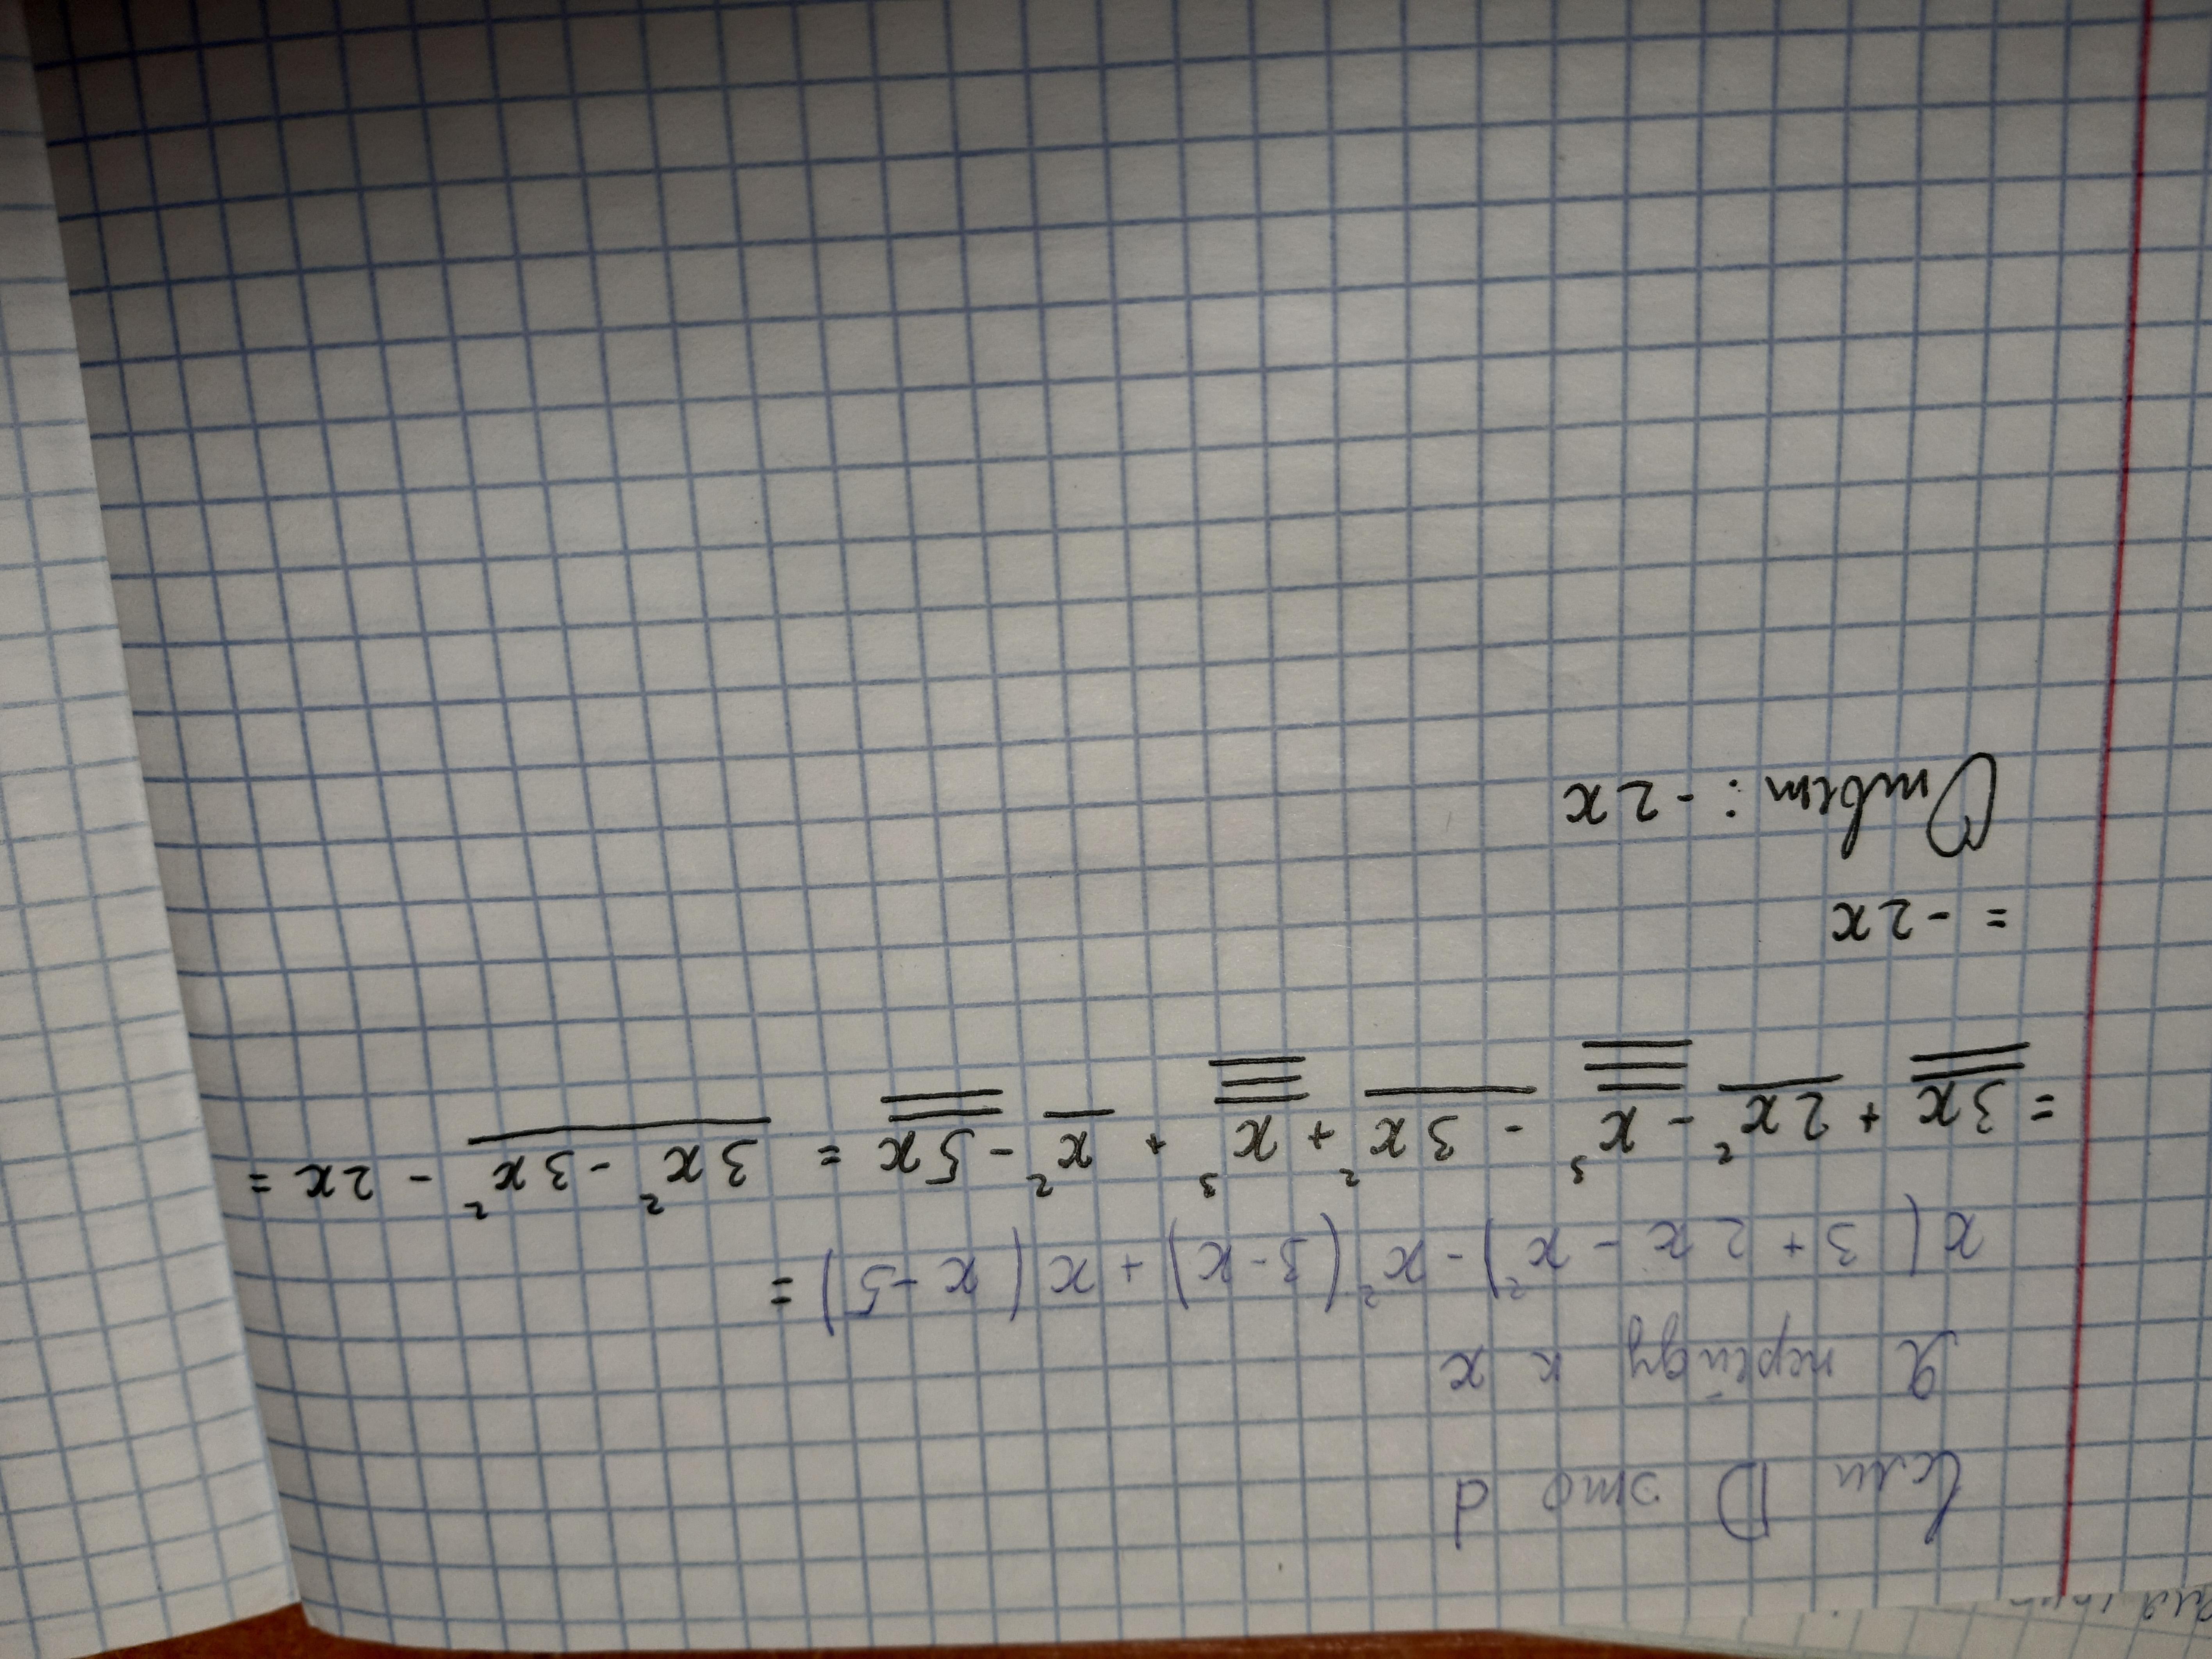 Если D это d
Я перейду к x
x(3+2x-x²)-x²(3-x)+x(x-5)=
=3x+2x²-x³-3x²+x³+x²-5x=3x²-3x²-2x=
=-2x
Ответ: -2x